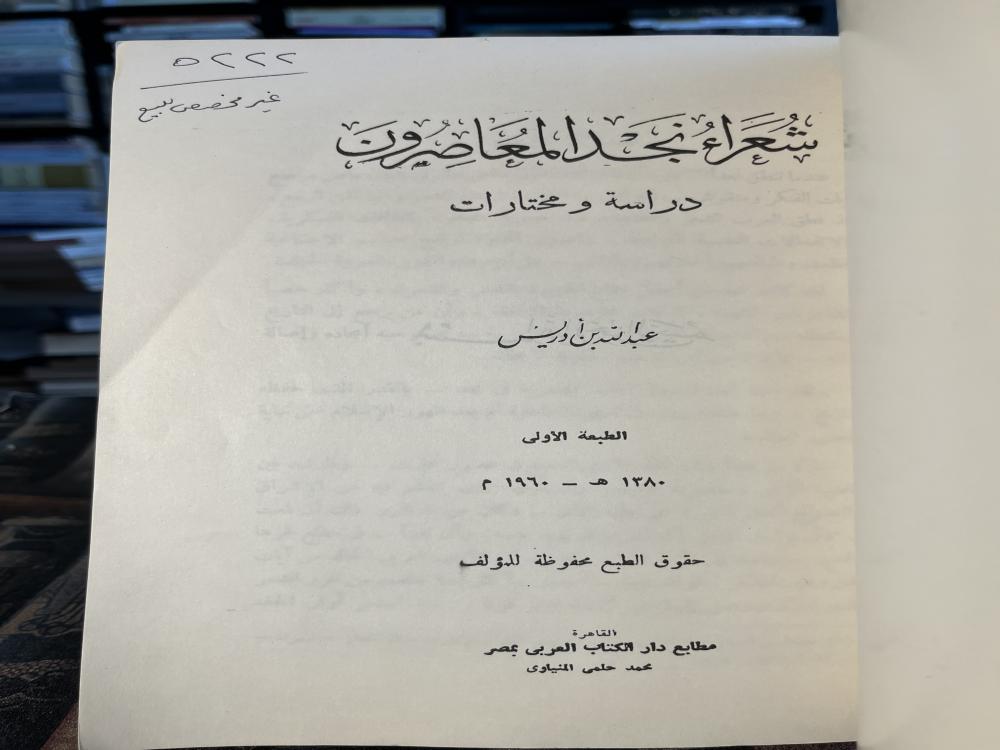 ٥٢٢٢
غير مخصص للبيع
شُعَرَاءُ نَجْد المُعَاصِرُونَ
دراسة و مختارات
عبد الله بن أدريس
الطبعة الأولى
١٣٨٠ هـ – ١٩٦٠ م
حقوق الطبع محفوظة للمؤلف
القاهرة
مطابع دار الكتاب العربى بمصر
محمد حلمى المنياوى